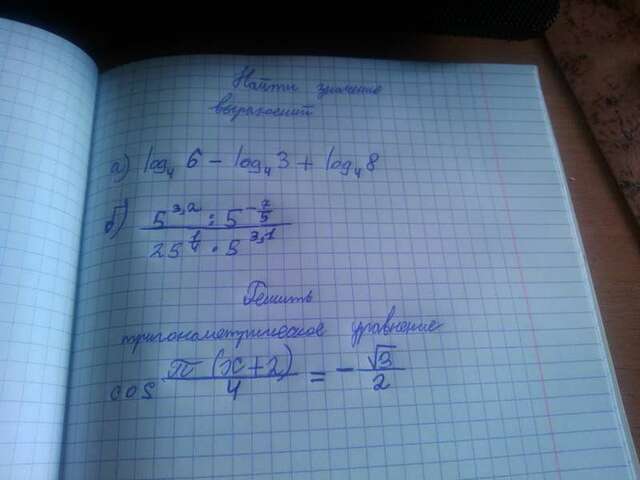 Найти значение
выражений
а) log₄ 6 − log₄ 3 + log₄ 8
б) (5^3,2 : 5^−7/5) / (25^1/4 · 5^3,1)
Решить
тригонометрическое уравнение
cos π (x+2) / 4 = − √3 / 2